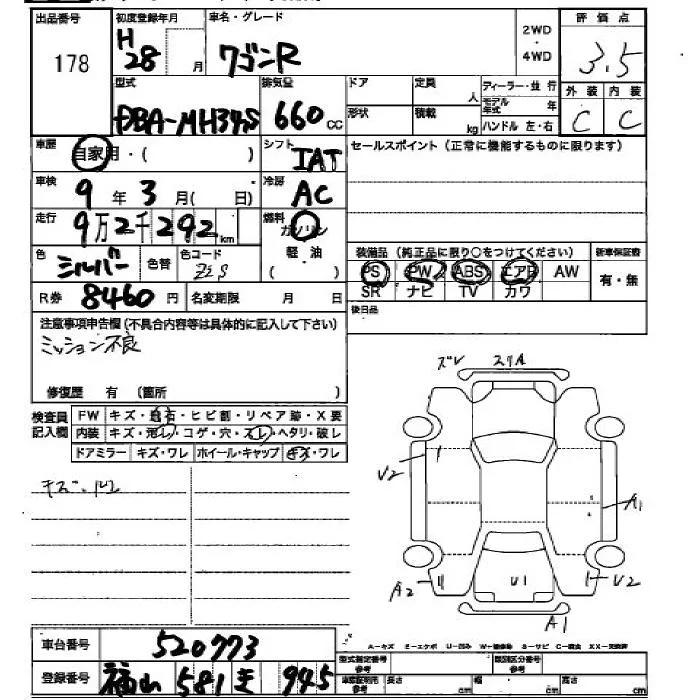 出品番号 初度登録年月 車名・グレード 2WD・4WD 評価点
178 H28 月 ワゴンR 3.5
型式 排気量 ドア 定員 人 ディーラー・並行 外装 内装
DBA-MH34S 660 cc 形状 積載 kg モデル年式 年 C C
ハンドル 左・右
車歴 自家用・( ) シフト IAT セールスポイント (正常に機能するものに限ります)
車検 9年3月( 日) 冷房 AC
走行 9万2千292km 燃料 ガソリン
軽・油
装備品 (純正品に限り○をつけてください) 新車保証書
色 シルバー 色替 色コード Z2S
PS PW ABS エアB AW 有・無
SR ナビ TV カワ
R券 8460円 名変期限 月 日
後日品
注意事項申告欄 (不具合内容等は具体的に記入して下さい)
ミッション不良
修復歴 有 (箇所 )
ズレ スリA
検査員記入欄 FW キズ・飛石・ヒビ割・リペア跡・X要
内装 キズ・汚レ・コゲ・穴・スレ・ヘタリ・破レ
ドアミラー キズ・ワレ ホイール・キャップ キズ・ワレ
V2
キズ・凹
A1
A2 U1 V2
A1
車台番号 520773
A-キズ E-エクボ U-凹み W-補修跡 S-サビ C-腐食 XX-交換済
型式指定番号 参考 類別区分番号 参考
登録番号 福山 581 き 945
車庫証明用 参考 長さ cm 幅 cm 高さ cm